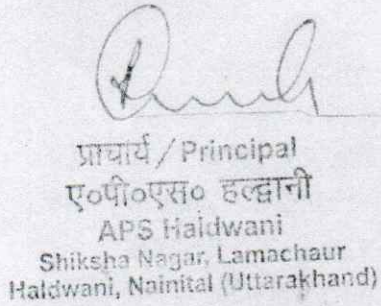 प्राचार्य / Principal
ए०पी०एस० हल्द्वानी
APS Haldwani
Shiksha Nagar, Lamachaur
Haldwani, Nainital (Uttarakhand)